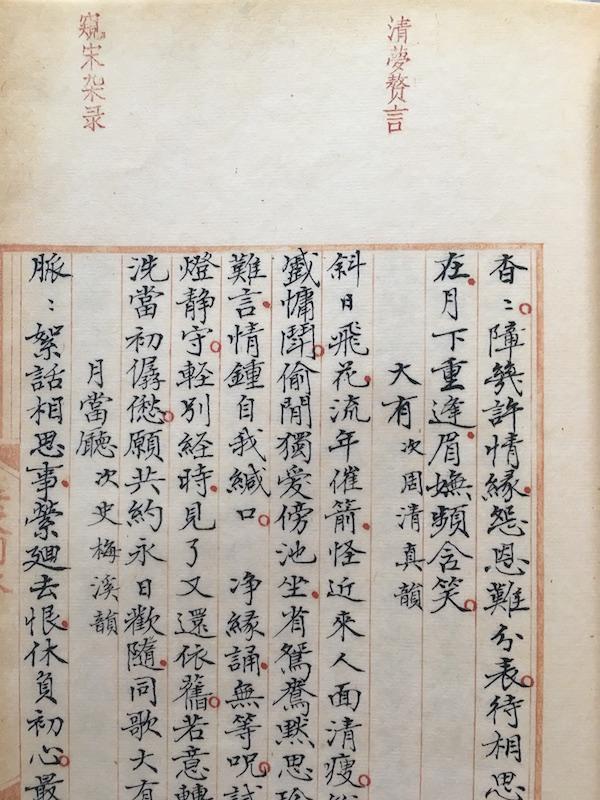 清夢贅言
窺宋杂录
杳〻障幾許情緣怨恩難分表待相思
在月下重逢眉嫵頻含笑
大有 次周清真韻
斜日飛花流年催箭怪近來人面清瘦
慵鬪偷閒獨愛傍池坐省鴛鴦默思
難言情鍾自我緘口 净緣誦無等呪試
燈静守輕別経時見了又還依舊若意轉
洗當初僝僽願共約永日歡隨同歌大有
月當廳 次史梅溪韻
脈〻絮話相思事縈廻去恨休負初心最